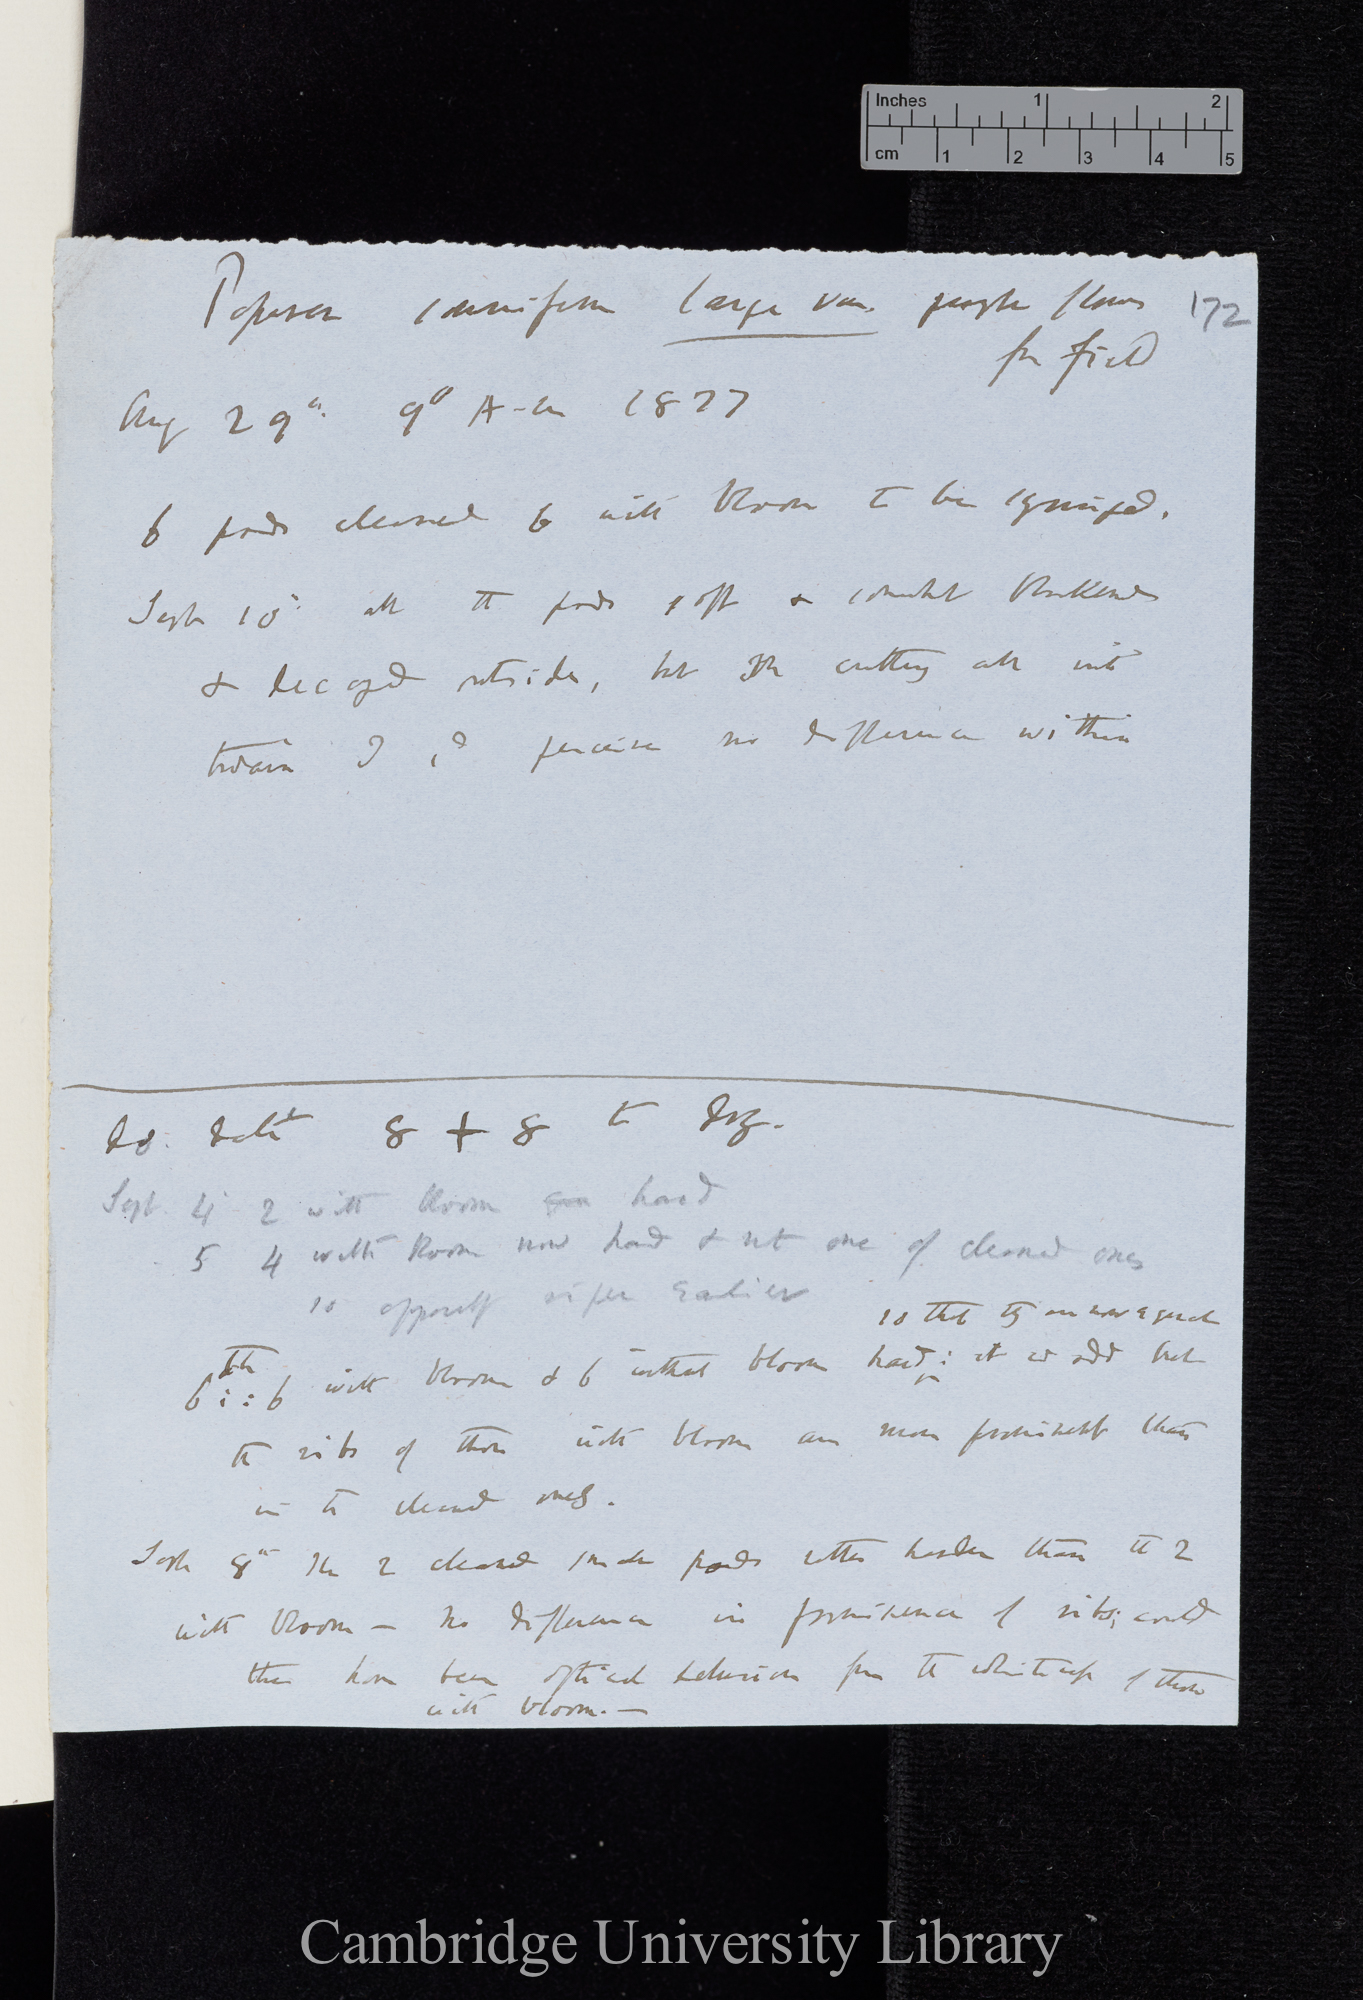 Inches 1 2
cm 1 2 3 4 5
172
Papaver somnifera large var. purple flowers
fr field
Aug 29th. 9° A-m 1877
6 pods cleaned 6 with bloom to be syringed.
Sept 10th all the pods soft & somewhat blackened
& decayed outside, but on cutting all into
twain I cd perceive no difference within
do. date 8 + 8 to dry.
Sept 4th 2 with bloom hard
5 4 with bloom now hard & not one of cleaned ones
so apparently ripen earlier
so that they are now equal
6th :: 6 with bloom & 6 without bloom hard; it is odd but
the ribs of those with bloom are more prominent than
in the cleaned ones.
Sept 8th The 2 cleaned pods rather harder than the 2
with bloom — No difference in prominence of ribs; could
there have been optical delusion from the whiteness of those
with bloom. —
Cambridge University Library